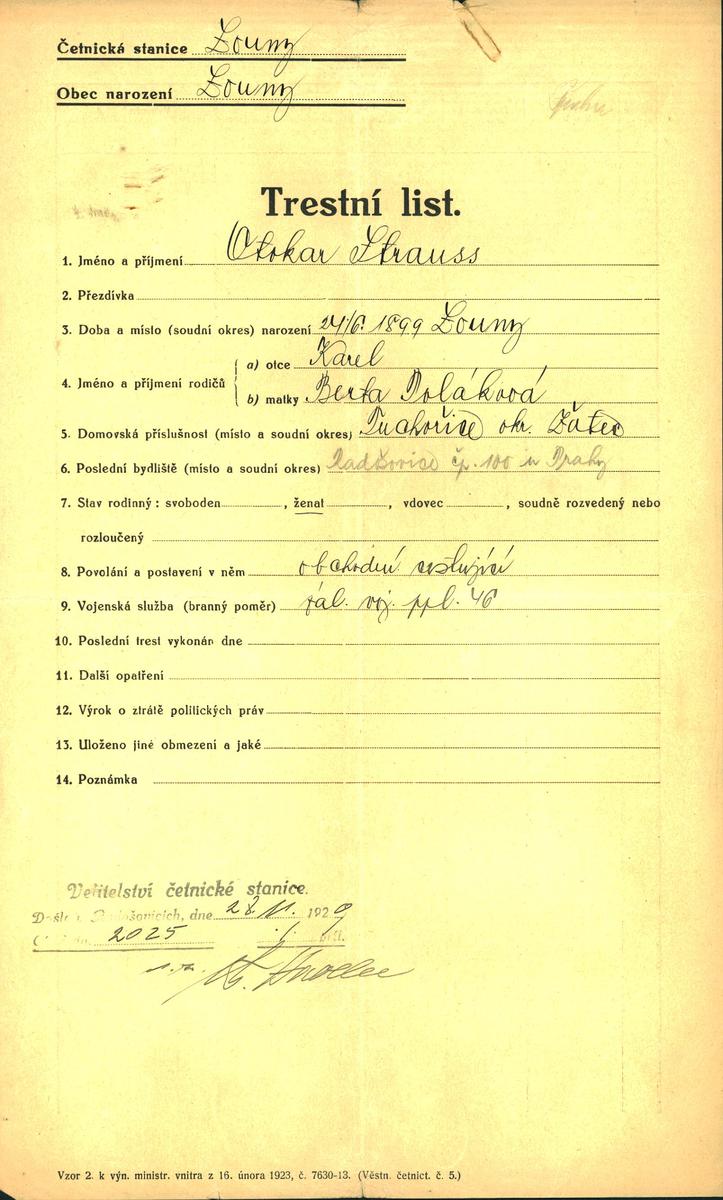 Četnická stanice Louny
Obec narození Louny
Trestní list.
1. Jméno a příjmení Otokar Strauss
2. Přezdívka
3. Doba a místo (soudní okres) narození 24/6. 1899 Louny
4. Jméno a příjmení rodičů
a) otce Karel
b) matky Berta Poláková
5. Domovská příslušnost (místo a soudní okres) Tuchořice okr. Žatec
6. Poslední bydliště (místo a soudní okres) čp. 100 u Prahy
7. Stav rodinný: svoboden , ženat , vdovec , soudně rozvedený nebo
rozloučený
8. Povolání a postavení v něm obchodní cestující
9. Vojenská služba (branný poměr) zál. voj. ppl. 46
10. Poslední trest vykonán dne
11. Další opatření
12. Výrok o ztrátě politických práv
13. Uloženo jiné obmezení a jaké
14. Poznámka
Velitelství četnické stanice.
dne 28 11. 1929
2025
Vzor 2. k výn. ministr. vnitra z 16. února 1923, č. 7630-13. (Věstn. četnict. č. 5.)